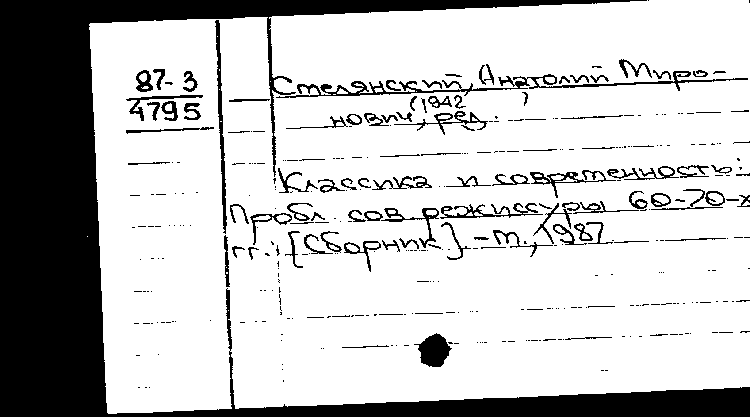 87-3
4795
Смелянский, Анатолий Миро-
(1942 )
нович, ред.
Классика и современность:
Пробл сов режиссуры 60-70-х
гг.: [Сборник] - М., 1987